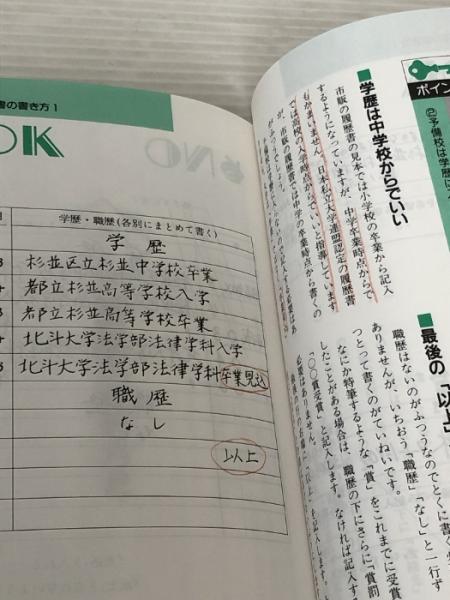 書の書き方1
OK
学歴・職歴(各別にまとめて書く)
学歴
杉並区立杉並中学校卒業
都立杉並高等学校入学
都立杉並高等学校卒業
北斗大学法学部法律学科入学
北斗大学法学部法律学科卒業見込
職歴
なし
以上
ポイン
予備校は学歴に
■学歴は中学校からでいい
市販の履歴書の見本では小学校の卒業から記入
するようになっていますが、中学卒業時点からで
もかまいません。日本私立大学連盟認定の履歴書
では高校の入学時点からでいいと指導しています
が、市販の履歴書では中学の卒業時点から書くの
がふつうでしょう。
■最後の「以上」
職歴はないのがふつうなのでとくに書く
ありませんが、いちおう「職歴」「なし」と一行ず
つとって書くのがていねいです。
なにか特筆するような「賞」をこれまでに受賞
したことがある場合は、職歴の下にさらに「賞罰
「〇〇賞受賞」と記入します。なければ記入する
必要はありません。